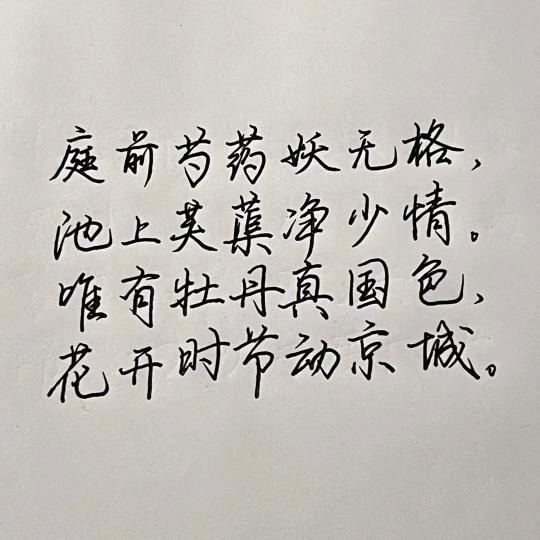 庭前芍药妖无格，
池上芙蕖净少情。
唯有牡丹真国色，
花开时节动京城。